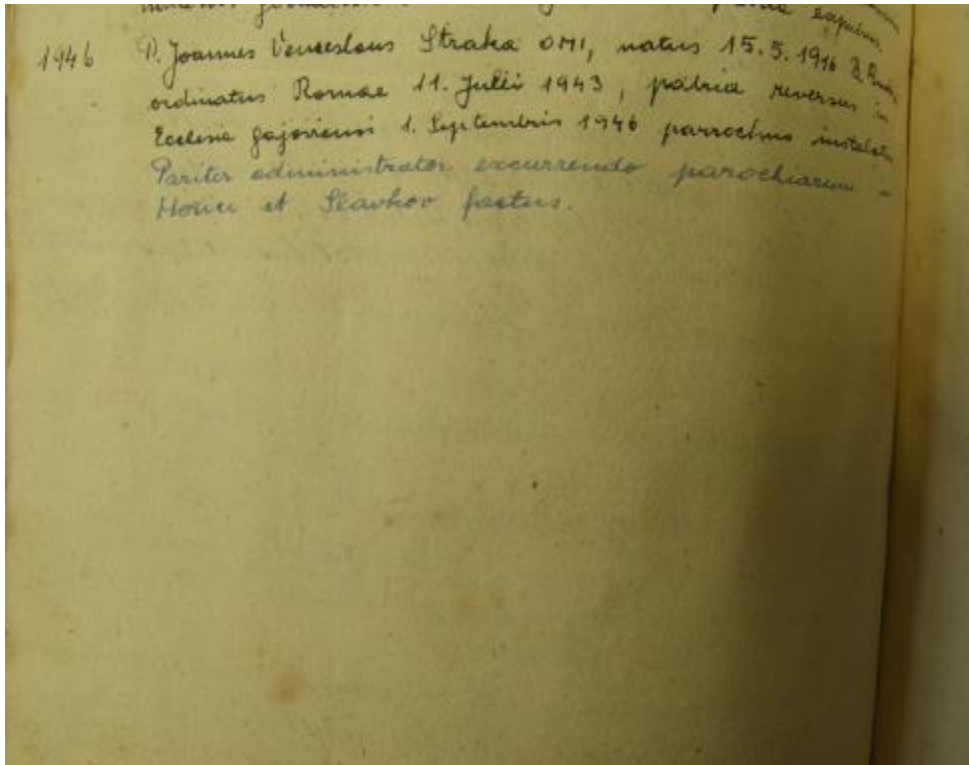 expulsus.
1946 P. Joannes Venceslaus Straka OMI, natus 15. 5. 1916
ordinatus Romae 11. Julii 1943, patria reversus in
Ecclesia gajoviensi 1. Septembris 1946 parrochus
Pariter administrator excurrendo parochiarum -
Horice et Slavkov factus.